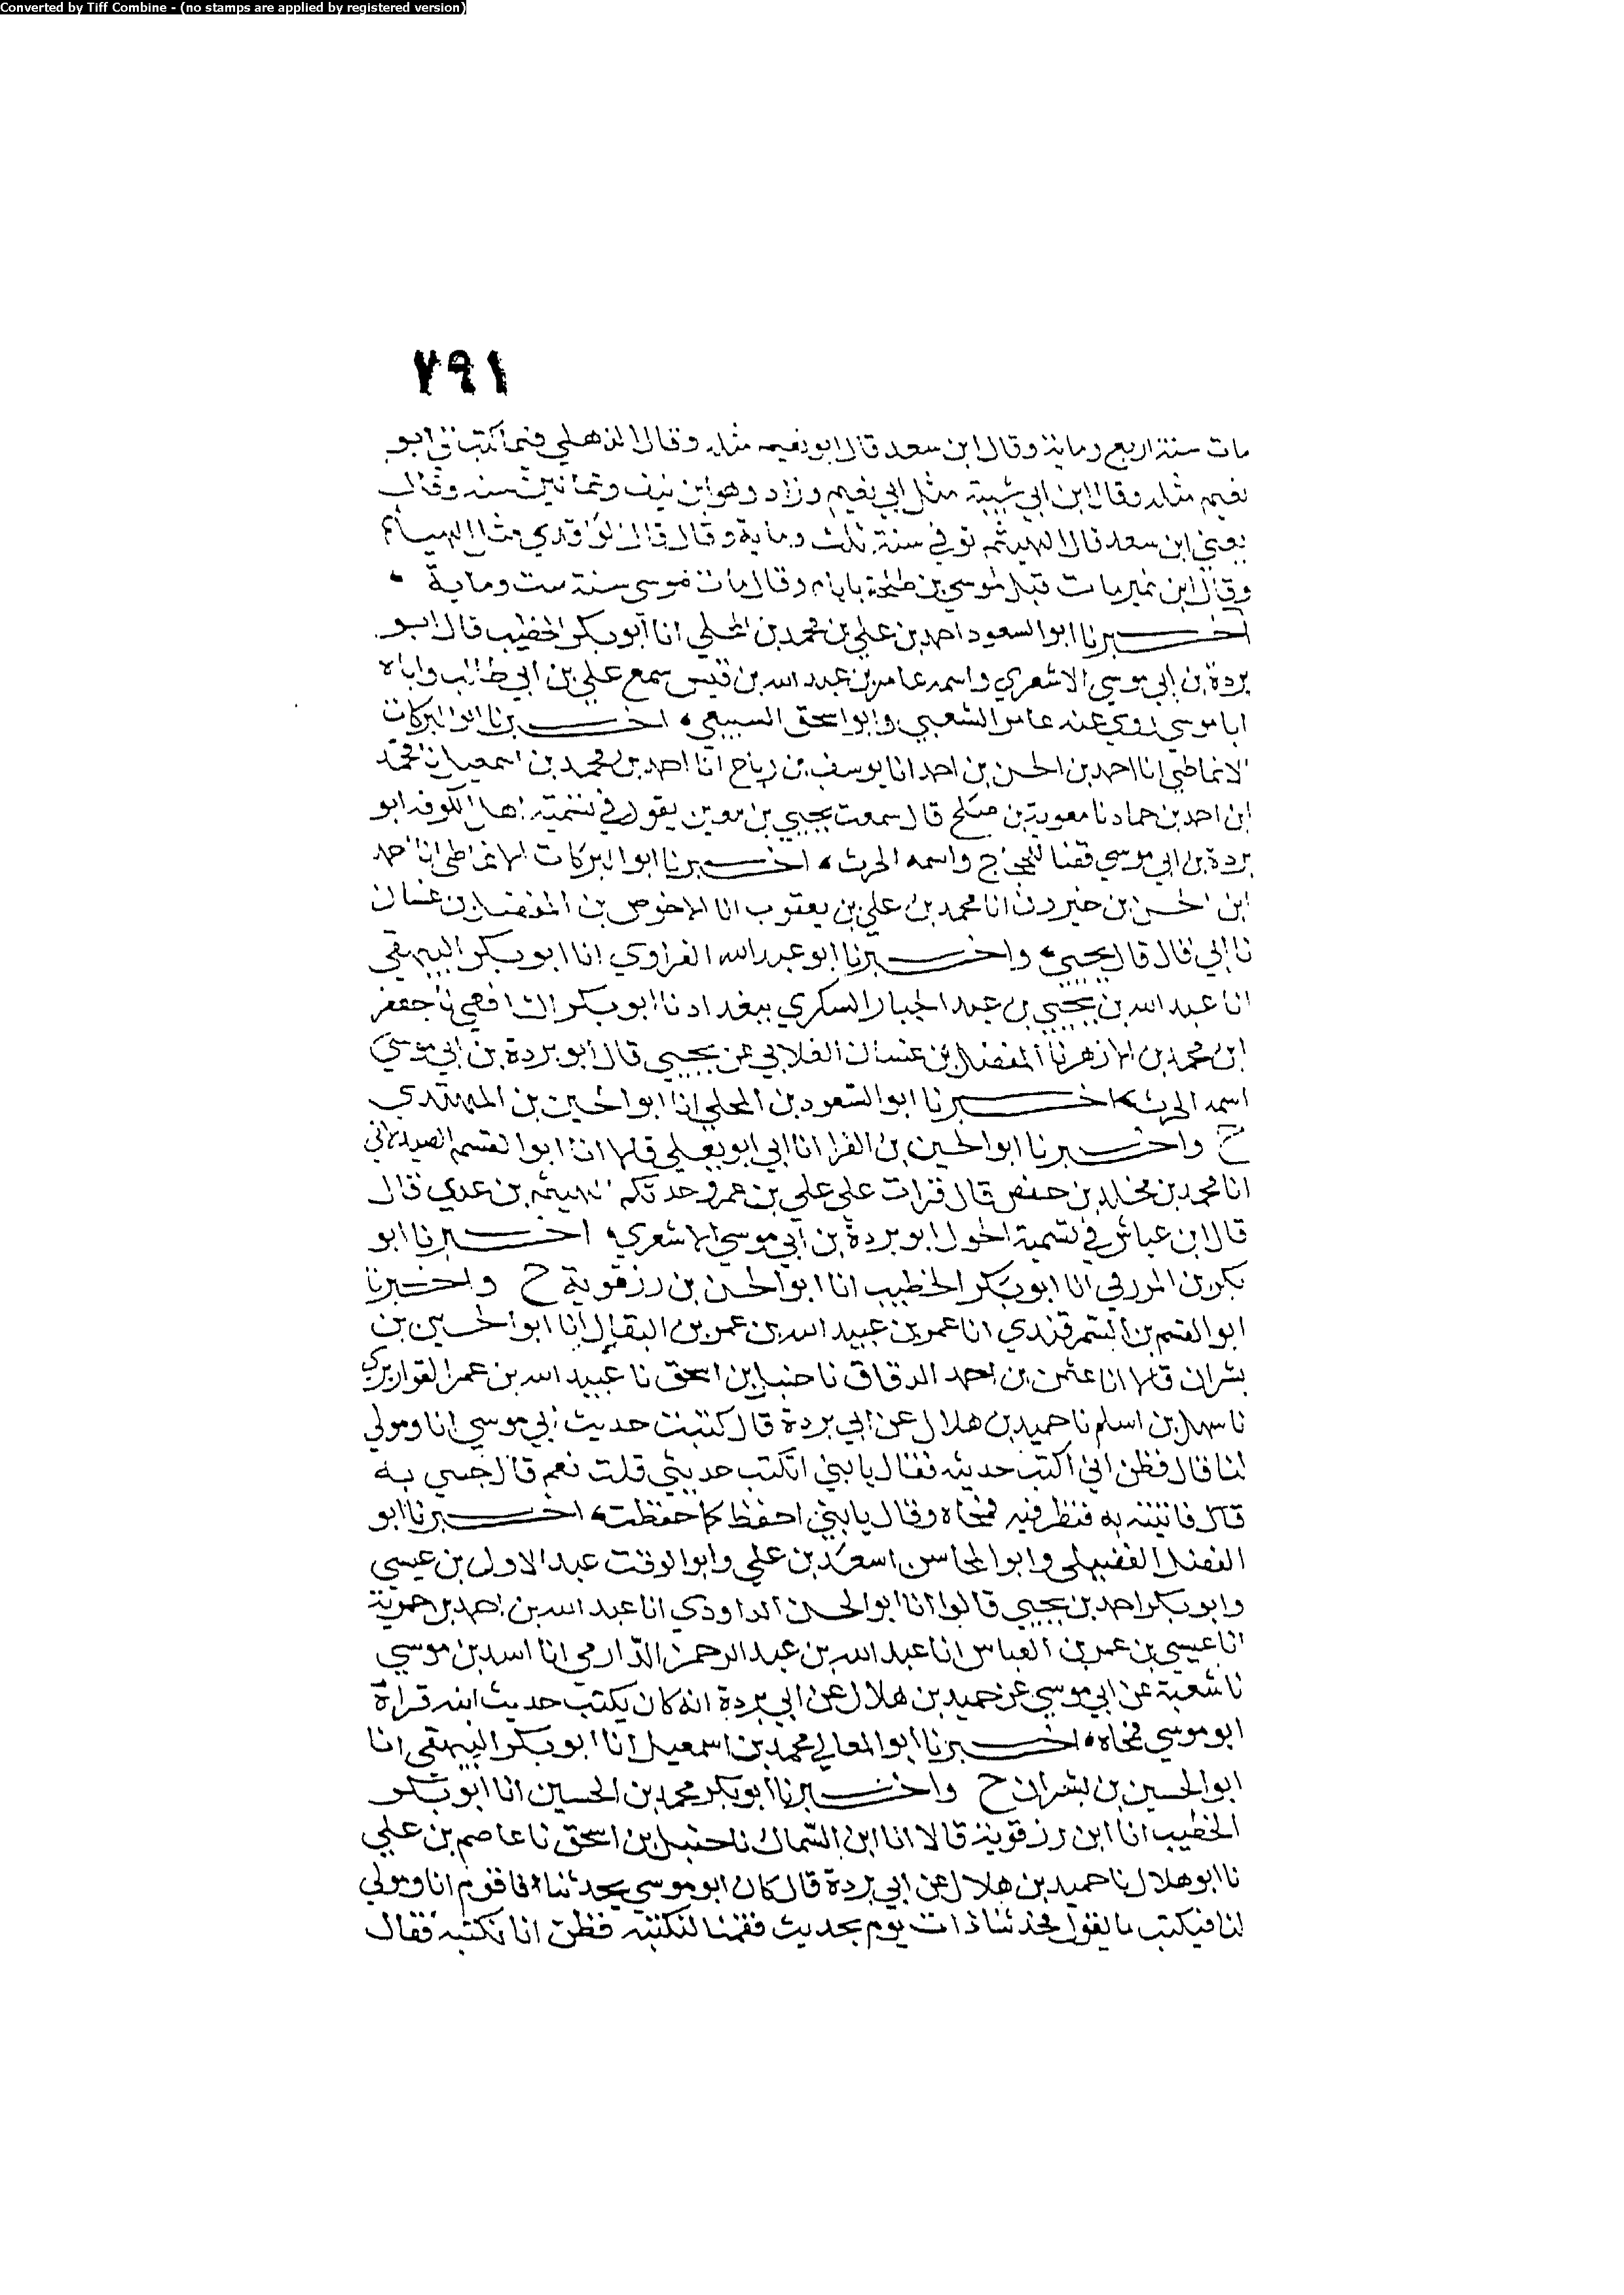 Converted by Tiff Combine - (no stamps are applied by registered version)
٧٩١
مات سنة اربع ومائة وقال ابن سعد قال ابو نعيم مثله وقال الذهلي فيما كتب الى ابو
نعيم مثله وقال ابن ابي شيبة مثل ابي نعيم وزاد وهو ابن نيف وثمانين سنة وقال
يعني ابن سعد قال الهيثم توفي سنة ثلث ومائة وقال قال الواقدي مثل الهيثم
وقال ابن نمير مات قبل موسى بن طلحة بايام وقال مات موسى سنة ست وماية
اخبرنا ابو السعود احمد بن علي بن محمد بن المجلي انا ابو بكر الخطيب قال ابو
بردة بن ابي موسي الاشعري واسمه عامر بن عبد الله بن قيس سمع علي بن ابي طالب واباه
ابا موسى روي عنه عامر الشعبي وابو اسحق السبيعي اخبرنا ابو البركات
الانماطي انا احمد بن الحسن بن احمد انا يوسف بن رباح انا احمد بن محمد بن اسمعيل نا محمد
ابن احمد بن حماد نا معوية بن صلح قال سمعت يحيي بن معين يقول في تسمية اهل الكوفه ابو
بردة بن ابي موسي قضا للحجاج واسمه الحرث اخبرنا ابو البركات الانماطي انا احمد
ابن الحسن بن خيرون انا محمد بن علي بن يعقوب انا الاحوص بن المفضل بن غسان
نا ابي قال قال يحيي واخبرنا ابو عبد الله الفراوي انا ابو بكر البيهقي
انا عبد الله بن يحيي بن عبد الجبار السكري ببغداد نا ابو بكر الشافعي نا جعفر
ابن محمد بن الازهر نا المفضل بن غسان الغلابي عن يحيي قال ابو بردة بن ابي موسي
اسمه الحرث اخبرنا ابو السعود بن المجلي انا ابو الحسين بن المهتدي
ح واخبرنا ابو الحسين بن الفرا انا ابي ابو يعلي قالا انا ابو القسم الصيدلاني
انا محمد بن مخلد بن حفص قال قرات علي علي بن عمرو حدثكم الهيثم بن عدي قال
قال ابن عباس في تسمية الحول ابو بردة بن ابي موسي الاشعري اخبرنا ابو
بكر بن المزرفي انا ابو بكر الخطيب انا ابو الحسن بن رزقوية ح واخبرنا
ابو القسم بن السمرقندي انا عمر بن عبيد الله بن عمر بن البقال انا ابو الحسين بن
بشران قالا انا عثمن بن احمد الدقاق نا حنبل بن اسحق نا عبيد الله بن عمر القواريري
نا سهل بن اسلم نا حميد بن هلال عن ابي بردة قال كتبت حديث ابي موسي انا ومولي
لنا قال فظن اني اكتب حديثه فقال يا بني اتكتب حديثي قلت نعم قال جئني به
قال فاتيته به فنظر فيه فمحاه وقال يا بني احفظ كما حفظت اخبرنا ابو
الفضل الفضيلي وابو المحاسن اسعد بن علي وابو الوقت عبد الاول بن عيسي
وابو بكر احمد بن يحيي قالوا انا ابو الحسن الداودي انا عبد الله بن احمد بن حموية
انا عيسي بن عمر بن العباس انا عبد الله بن عبد الرحمن الدارمي انا اسد بن موسي
نا شعبة عن ابي موسي عن حميد بن هلال عن ابي بردة انه كان يكتب حديث ابيه فراه
ابو موسي فمحاه اخبرنا ابو المعالي محمد بن اسمعيل انا ابو بكر البيهقي انا
ابو الحسين بن بشران ح واخبرنا ابو بكر محمد بن الحسين انا ابو بكر
الخطيب انا ابن رزقوية قالا انا ابن السماك نا حنبل بن اسحق نا عاصم بن علي
نا ابو هلال نا حميد بن هلال عن ابي بردة قال كان ابو موسي يحدثنا فاقوم انا ومولي
لنا فيكتب ما يقول فحدثنا ذات يوم بحديث فقمنا لنكتبه فظن انا نكتبه فقال